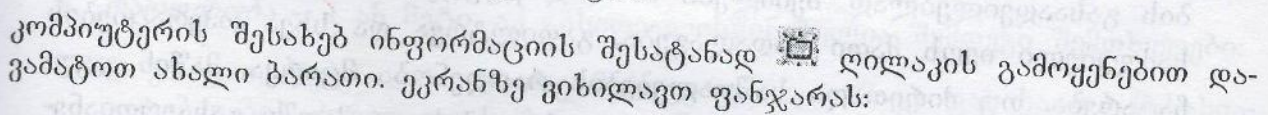 კომპიუტერის შესახებ ინფორმაციის შესატანად ღილაკის გამოყენებით და-
ვამატოთ ახალი ბარათი. ეკრანზე ვიხილავთ ფანჯარას: